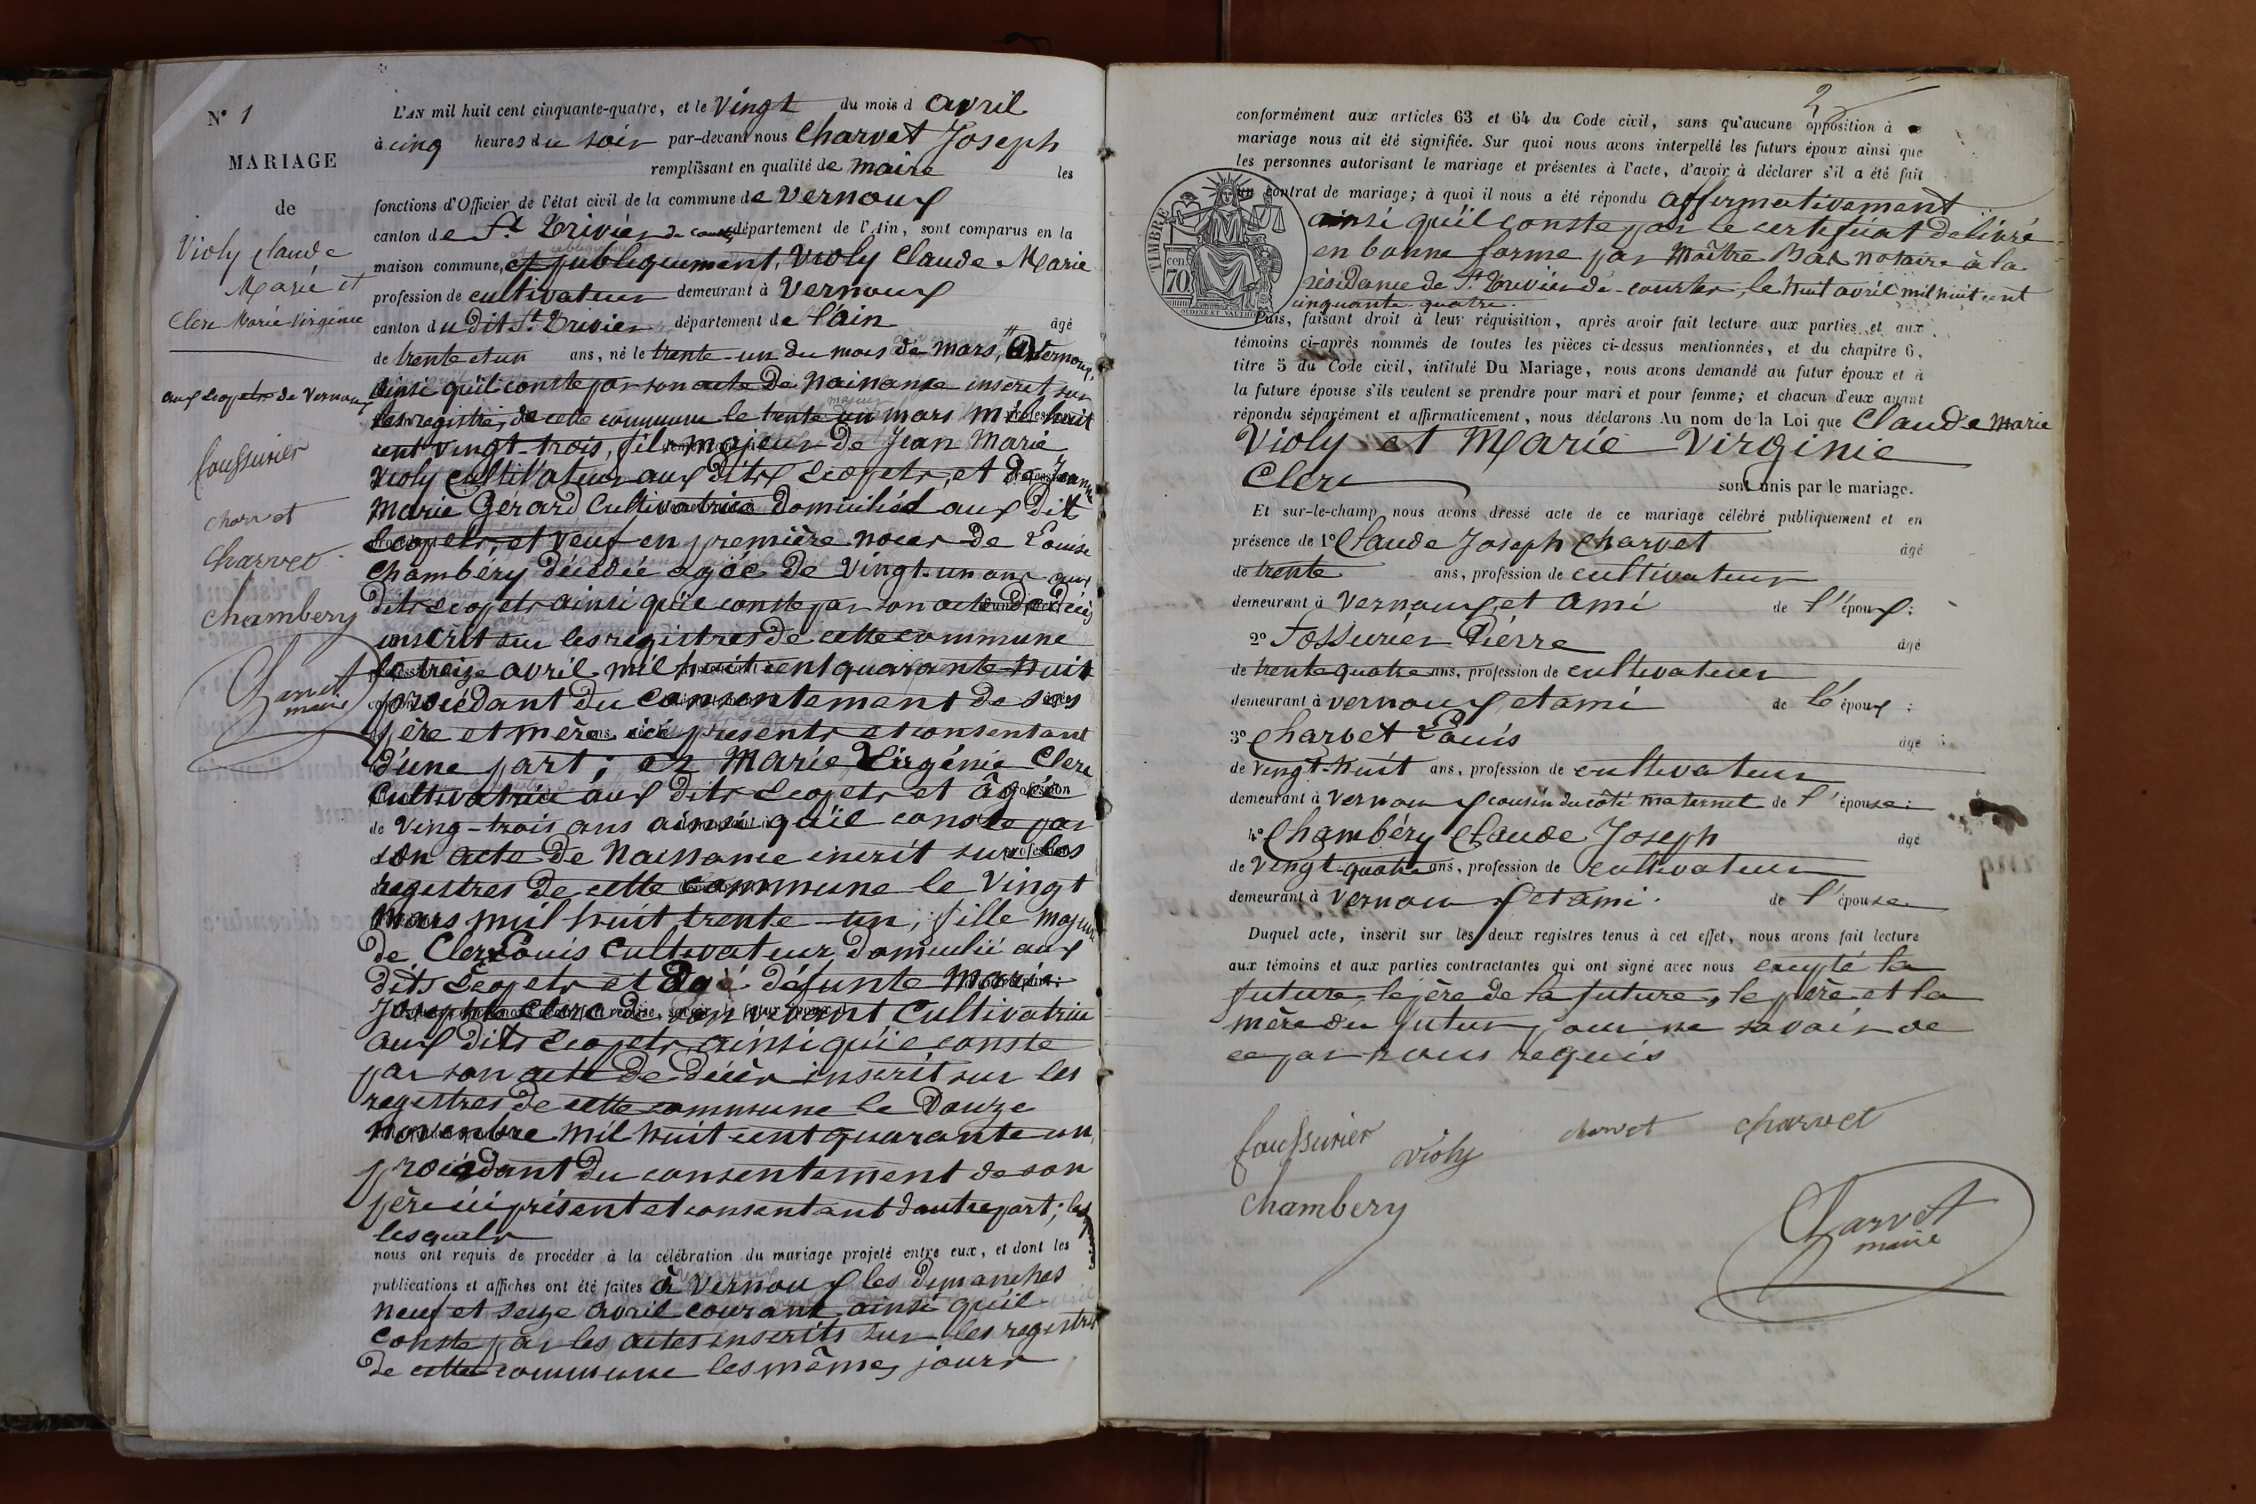 N° 1
MARIAGE
de
Violy Claude
Marie et
Clerc Marie Virginie
aux Scopets de Vernoux
foussurier
charvet
Charvet
chambery
Charvet
maire
L'AN mil huit cent cinquante-quatre, et le Vingt du mois d avril
à cinq heures du soir par-devant nous Charvet Joseph
remplissant en qualité de maire les
fonctions d'Officier de l'état civil de la commune de Vernoux
canton de St Trivier de courtes département de l'Ain, sont comparus en la
maison commune, et publiquement, Violy Claude Marie
profession de cultivateur demeurant à Vernoux
canton du dit St Trivier département de l'ain âgé
de trente et un ans, né le trente-un du mois de mars, à Vernoux,
ainsi qu'il conste par son acte de naissance inscrit sur
les registre, de cette commune le trente un mars mil huit
cent vingt-trois, fils majeur de Jean Marie
Violy cultivateur aux dits Scopets, et de Jeanne
Marie Gérard Cultivatrice domiciliés aux dit
Scopets, et veuf en première noces de Louise
Chambéry décédée agée de vingt-un ans aux
dits scopets ainsi qu'il conste par son acte de décès
inscrit sur les registres de cette commune
le treize avril mil huit cent quarante-huit
procédant du consentement de ses
père et mère ici présents et consentant
d'une part; et Marie Virgénie Clerc
Cultivatrice aux dits Scopets et âgée
de Ving-trois ans ainsi qu'il conste par
son acte de naissance inscrit sur les
registres de cette commune le Vingt
Mars mil huit trente-un, fille majeure
de Clerc Louis Cultivateur domicilié aux
dits Scopets et de défunte Marie
Josephte Clerc de son vivant Cultivatrice
aux dits Scopets ainsi qu'il conste
par son acte de décès inscrit sur les
registres de cette commune le Douze
Novembre mil huit cent quarante un,
procédant du consentement de son
père ici présent et consentant d'autre part; les
lesquels
nous ont requis de procéder à la célébration du mariage projeté entre eux, et dont les
publications et affiches ont été faites à Vernoux les dimanches
neuf et seize avril courant, ainsi qu'il
conste par les actes inscrits sur les registres
de cette commune les mêmes jours
2
conformément aux articles 63 et 64 du Code civil, sans qu'aucune opposition à ce
mariage nous ait été signifiée. Sur quoi nous avons interpellé les futurs époux ainsi que
les personnes autorisant le mariage et présentes à l'acte, d'avoir à déclarer s'il a été fait
un contrat de mariage; à quoi il nous a été répondu affirmativement
ainsi qu'il conste par le certificat délivré
en bonne forme par Maître notaire à la
résidance de St Trivier de courtes, le huit avril mil huit cent
cinquante-quatre.
TIMBRE
cen.
70
Puis, faisant droit à leur réquisition, après avoir fait lecture aux parties et aux
témoins ci-après nommés de toutes les pièces ci-dessus mentionnées, et du chapitre 6,
titre 5 du Code civil, intitulé Du Mariage, nous avons demandé au futur époux et à
la future épouse s'ils veulent se prendre pour mari et pour femme; et chacun d'eux ayant
répondu séparément et affirmativement, nous déclarons Au nom de la Loi que Claude Marie
Violy et Marie Virginie
Clerc sont unis par le mariage.
Et sur-le-champ nous avons dressé acte de ce mariage célébré publiquement et en
présence de 1° Claude Joseph Charvet âgé
de trente ans, profession de cultivateur
demeurant à Vernoux et ami de l'époux:
2° Fossurier Pierre âgé
de trente quatre ans, profession de cultivateur
demeurant à vernoux et ami de l'époux:
3° Charvet Louis âgé
de Vingt-huit ans, profession de cultivateur
demeurant à Vernoux cousin du côté maternel de l'épouse:
4° Chambéry Claude Joseph âgé
de Vingt-quatre ans, profession de cultivateur
demeurant à Vernoux et ami. de l'épouse
Duquel acte, inscrit sur les deux registres tenus à cet effet, nous avons fait lecture
aux témoins et aux parties contractantes qui ont signé avec nous excepté la
future, le père de la future, le père et la
mère du futur pour ne savoir de
ce par nous requis
foussurier Violy charvet Charvet
chambery
Charvet
maire